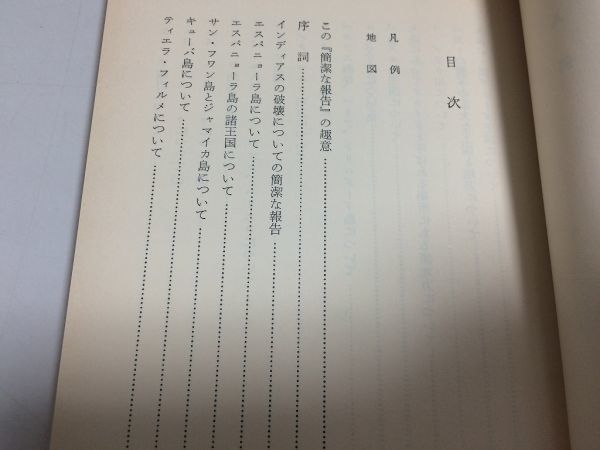 目次
凡例
地図
この『簡潔な報告』の趣意
序詞
インディアスの破壊についての簡潔な報告
エスパニョーラ島について
エスパニョーラ島の諸王国について
サン・フワン島とジャマイカ島について
キューバ島について
ティエラ・フィルメについて